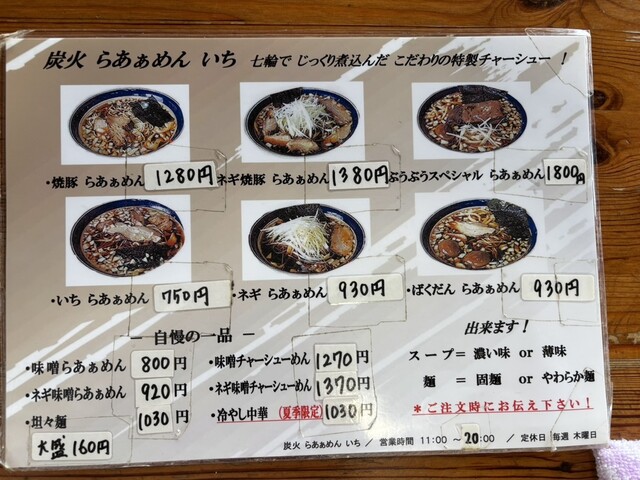 炭火 らあぁめん いち 七輪で じっくり煮込んだ こだわりの特製チャーシュー！
・焼豚 らあぁめん 1280円
ネギ焼豚 らあぁめん 1380円
ぶうぶうスペシャル らあぁめん 1800円
・いち らあぁめん 750円
・ネギ らあぁめん 930円
・ばくだん らあぁめん 930円
― 自慢の一品 ―
・味噌らあぁめん 800円
・ネギ味噌らあぁめん 920円
・坦々麺 1030円
大盛 160円
・味噌チャーシューめん 1270円
・ネギ味噌チャーシューめん 1370円
・冷やし中華 (夏季限定) 1030円
出来ます！
スープ＝ 濃い味 or 薄味
麺 ＝ 固麺 or やわらか麺
＊ご注文時にお伝え下さい！
炭火 らあぁめん いち ／ 営業時間 11:00 ～20:00 ／ 定休日 毎週 木曜日